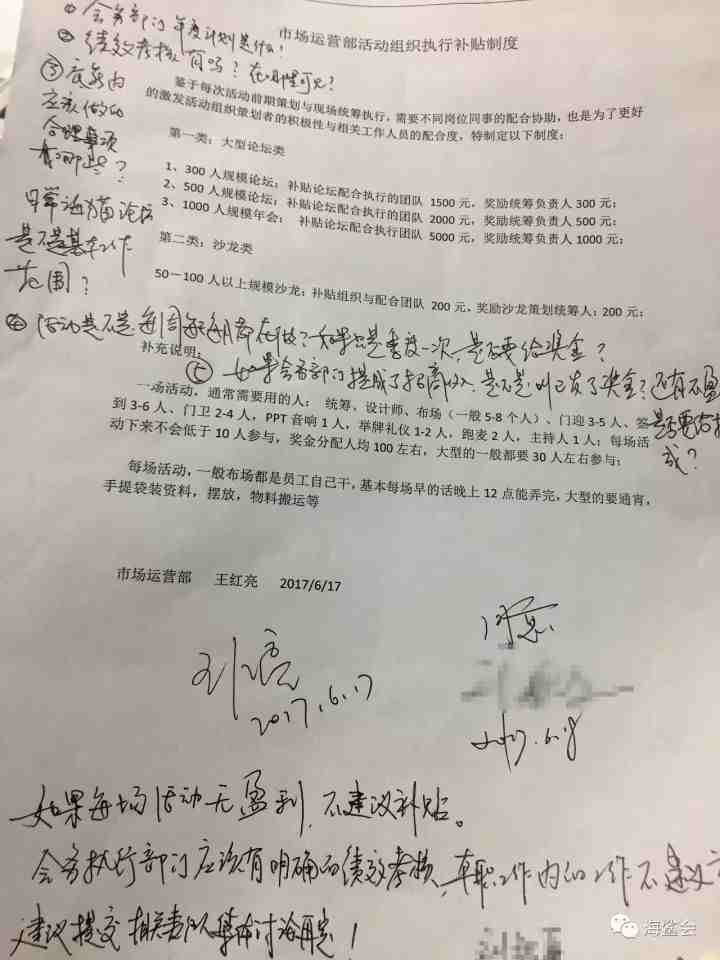 ① 会务部门年度计划是什么!
市场运营部活动组织执行补贴制度
② 绩效考核有吗?在哪里可见?
③ 底薪内
应该做的
合理事项
有哪些?
日常海猫论坛
是不是基本工作
范围?
鉴于每次活动前期策划与现场统筹执行,需要不同岗位同事的配合协助,也是为了更好
的激发活动组织策划者的积极性与相关工作人员的配合度,特制定以下制度:
第一类:大型论坛类
1、300 人规模论坛:补贴论坛配合执行的团队 1500 元,奖励统筹负责人 300 元;
2、500 人规模论坛:补贴论坛配合执行的团队 2000 元,奖励统筹负责人 500 元;
3、1000 人规模年会: 补贴论坛配合执行团队 5000 元,奖励统筹负责人 1000 元;
第二类:沙龙类
50－100 人以上规模沙龙:补贴组织与配合团队 200 元、奖励沙龙策划统筹人:200 元;
④ 活动是不是每周每月都在做?如果只是季度一次,是否要给奖金?
补充说明:
⑤ 如果会务部门提成了招商收入,是不是叫已发了奖金?还有不盈
是否要给扣
成?
一场活动,通常需要用的人: 统筹、设计师、布场(一般 5-8 个人)、门迎 3-5 人、签
到 3-6 人、门卫 2-4 人,PPT 音响 1 人,举牌礼仪 1-2 人,跑麦 2 人,主持人 1 人;每场活
动下来不会低于 10 人参与,奖金分配人均 100 左右,大型的一般都要 30 人左右参与;
每场活动,一般布场都是员工自己干,基本每场早的话晚上 12 点能弄完,大型的要通宵,
手提袋装资料,摆放,物料搬运等
市场运营部 王红亮 2017/6/17
2017.6.17
同意
2017.6.18
如果每场活动无盈利,不建议补贴。
会务执行部门应该有明确的绩效考核,本职工作内的工作不建议
建议提交相关责任人集体讨论再定!
海鲨会